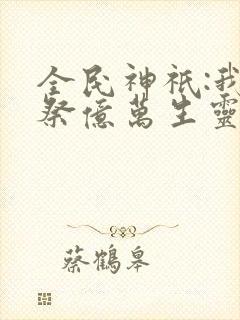 全民神祇:我
祭億萬生靈
蔡鶴皋